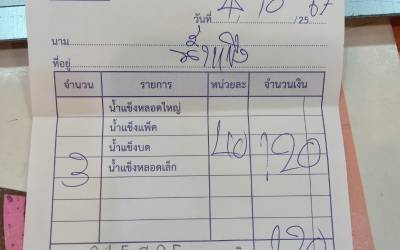 วันที่ 4/10/2567
นาม น้ำแข็ง
ที่อยู่
จำนวน รายการ หน่วยละ จำนวนเงิน
น้ำแข็งหลอดใหญ่
น้ำแข็งแพ็ค
น้ำแข็งบด
3 น้ำแข็งหลอดเล็ก 40 120
120